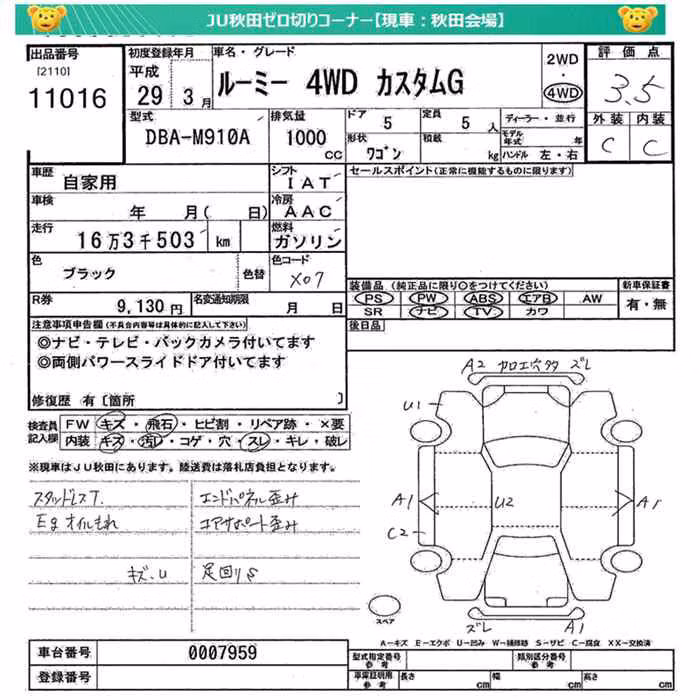 JU秋田ゼロ切りコーナー【現車：秋田会場】
出品番号
[2110]
11016
初度登録年月
平成
29 3月
車名・グレード
ルーミー 4WD カスタムG
2WD
・
4WD
評価点
3.5
型式
DBA-M910A
排気量
1000
CC
ドア
5
定員
5 人
形状
ワゴン
積載
kg
ディーラー・並行
モデル年式 年
ハンドル 左・右
外装 内装
C C
車歴
自家用
シフト
IAT
車検
年 月( 日)
冷房
AAC
走行
16万3千503 km
燃料
ガソリン
色
ブラック
色替
色コード
X07
R券
9,130円
名変通知期限
月 日
セールスポイント(正常に機能するものに限ります)
装備品 (純正品に限り○をつけてください)
PS PW ABS エアB AW
SR ナビ TV カワ
新車保証書
有・無
後日品
注意事項申告欄(不具合内容等は具体的に記入して下さい)
◎ナビ・テレビ・バックカメラ付いてます
◎両側パワースライドドア付いてます
修復歴 有〔箇所 〕
検査員記入欄
FW キズ・飛石・ヒビ割・リペア跡・×要
内装 キズ・汚レ・コゲ・穴・スレ・キレ・破レ
※現車はJU秋田にあります。陸送費は落札店負担となります。
スタッドレスT.
エンドパネル歪み
Egオイルもれ
コアサポート歪み
キズ.U
足回りS
A2 カロエ穴多 ズレ
U1
A1
U2
A1
C2
スペア
ズレ A1
A－キズ E－エクボ U－凹み W－補修跡 S－サビ C－腐食 XX－交換済
車台番号
0007959
登録番号
型式指定番号
参考
類別区分番号
参考
車庫証明用
参考
長さ cm
幅 cm
高さ cm